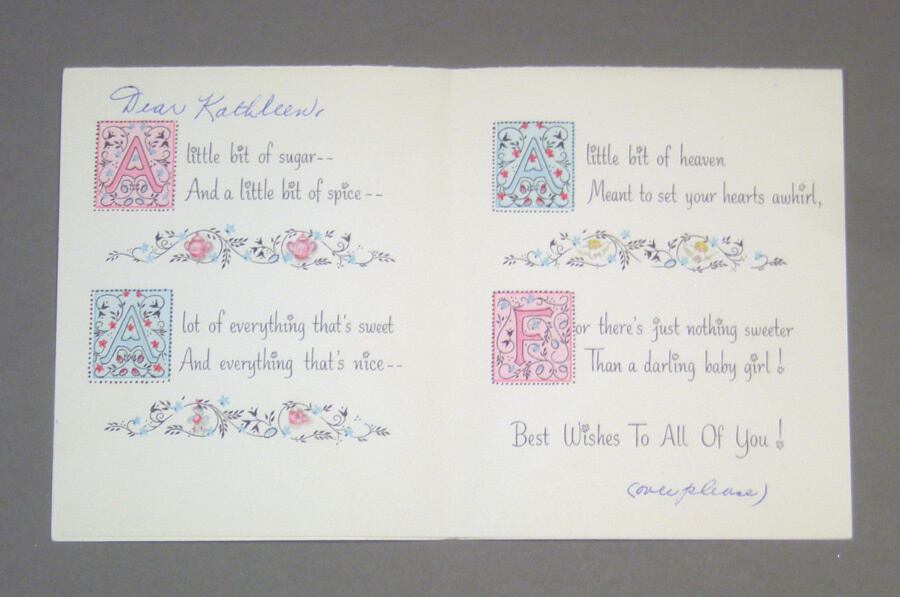 Dear Kathleen,
A little bit of sugar--
And a little bit of spice--
A lot of everything that's sweet
And everything that's nice--
A little bit of heaven
Meant to set your hearts awhirl,
For there's just nothing sweeter
Than a darling baby girl!
Best Wishes To All Of You!
(over please)